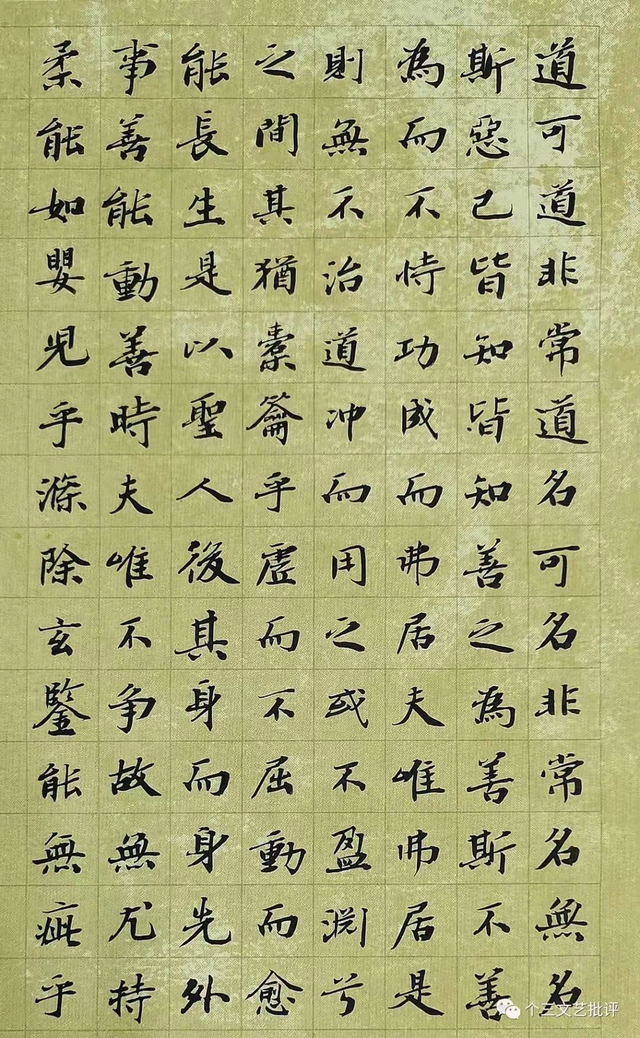 道可道非常道名可名非常名無名
斯惡已皆知皆知善之為善斯不善
為而不恃功成而弗居夫唯弗居是
則無不治道冲而用之或不盈渊兮
之間其猶橐籥乎虛而不屈動而愈
能長生是以聖人後其身而身先外
事善能動善時夫唯不争故無尤持
柔能如嬰兒乎滌除玄鑒能無疵乎
个三文艺批评